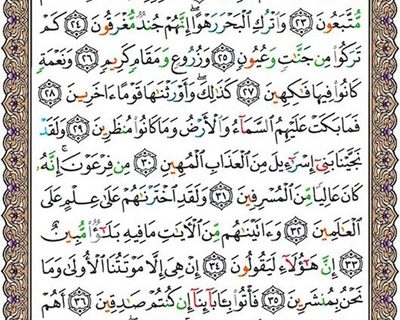 مُّتَّبَعُونَ ٢٣ وَٱتْرُكِ ٱلْبَحْرَ رَهْوًا ۖ إِنَّهُمْ جُندٌ مُّغْرَقُونَ ٢٤ كَمْ
تَرَكُوا۟ مِن جَنَّـٰتٍ وَعُيُونٍ ٢٥ وَزُرُوعٍ وَمَقَامٍ كَرِيمٍ ٢٦ وَنَعْمَةٍ
كَانُوا۟ فِيهَا فَـٰكِهِينَ ٢٧ كَذَٰلِكَ ۖ وَأَوْرَثْنَـٰهَا قَوْمًا ءَاخَرِينَ ٢٨
فَمَا بَكَتْ عَلَيْهِمُ ٱلسَّمَآءُ وَٱلْأَرْضُ وَمَا كَانُوا۟ مُنظَرِينَ ٢٩ وَلَقَدْ
نَجَّيْنَا بَنِىٓ إِسْرَٰٓءِيلَ مِنَ ٱلْعَذَابِ ٱلْمُهِينِ ٣٠ مِن فِرْعَوْنَ ۚ إِنَّهُۥ
كَانَ عَالِيًا مِّنَ ٱلْمُسْرِفِينَ ٣١ وَلَقَدِ ٱخْتَرْنَـٰهُمْ عَلَىٰ عِلْمٍ عَلَى
ٱلْعَـٰلَمِينَ ٣٢ وَءَاتَيْنَـٰهُم مِّنَ ٱلْـَٔايَـٰتِ مَا فِيهِ بَلَـٰٓؤٌا۟ مُّبِينٌ
٣٣ إِنَّ هَـٰٓؤُلَآءِ لَيَقُولُونَ ٣٤ إِنْ هِىَ إِلَّا مَوْتَتُنَا ٱلْأُولَىٰ وَمَا
نَحْنُ بِمُنشَرِينَ ٣٥ فَأْتُوا۟ بِـَٔابَآئِنَآ إِن كُنتُمْ صَـٰدِقِينَ ٣٦ أَهُمْ